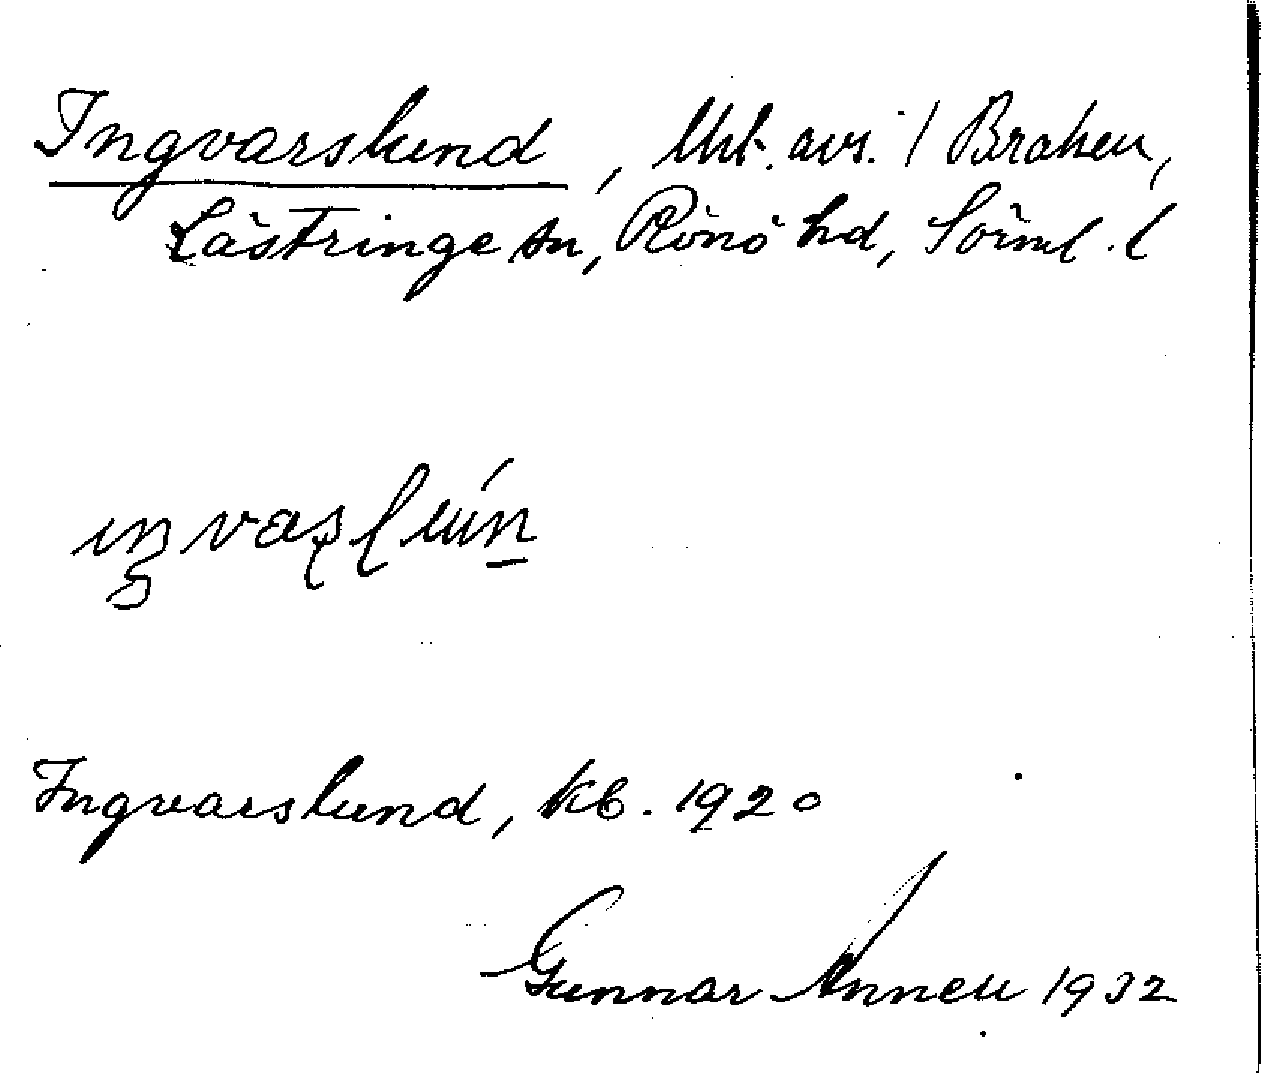 Ingvarslund, lht. avs. / Braken,
Lästringe sn, Rönö hd, Söml. l
Ingvarslund, kb. 1920
Gunnar Annell 1932